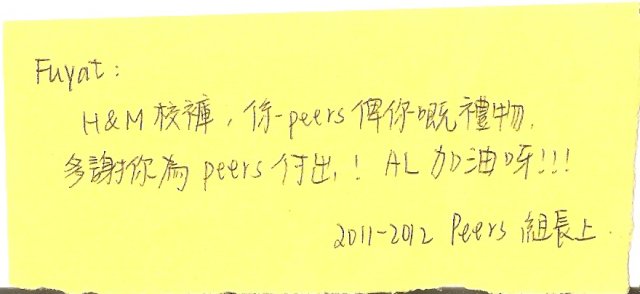 Fuyat:
H&M 校褲，係 peers 俾你嘅禮物，
多謝你為 peers 付出！ AL 加油呀!!!
2011-2012 Peers 組長上